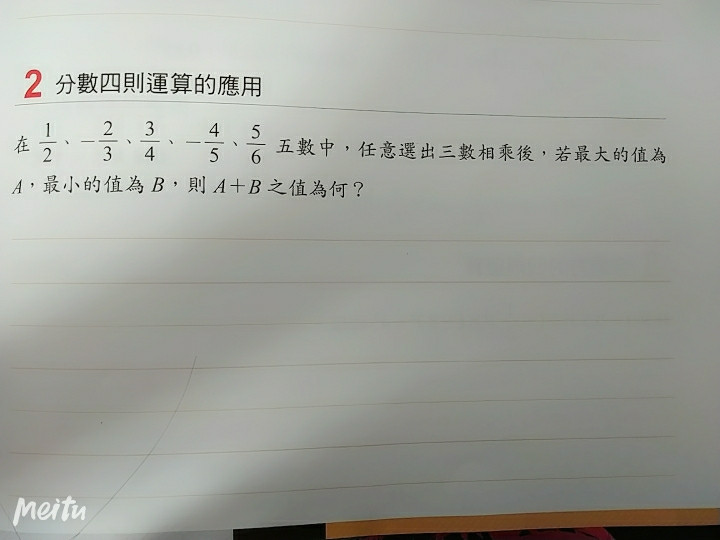 2 分數四則運算的應用
在 1/2、-2/3、3/4、-4/5、5/6 五數中，任意選出三數相乘後，若最大的值為
A，最小的值為 B，則 A+B 之值為何？
Meitu